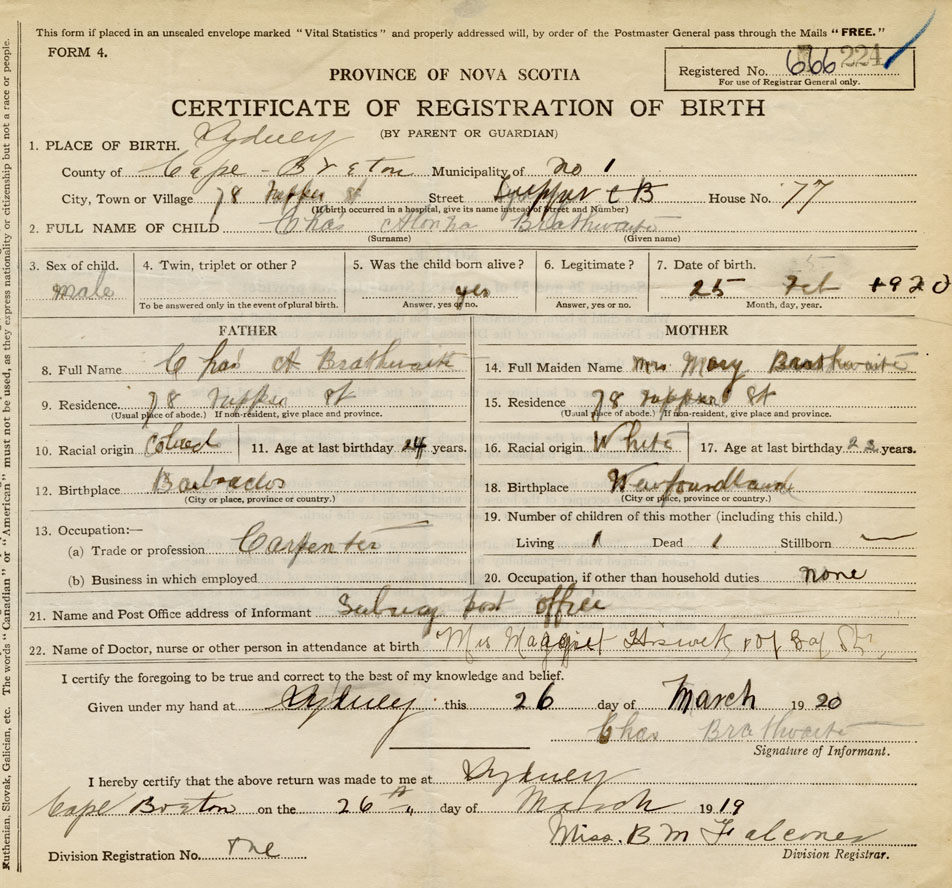 This form if placed in an unsealed envelope marked "Vital Statistics" and properly addressed will, by order of the Postmaster General pass through the Mails "FREE."
FORM 4.
Registered No. 666 224
For use of Registrar General only.
PROVINCE OF NOVA SCOTIA
CERTIFICATE OF REGISTRATION OF BIRTH
(BY PARENT OR GUARDIAN)
1. PLACE OF BIRTH. Sydney
County of Cape - Breton Municipality of no 1
City, Town or Village 78 Tupper St Street Tupper t B House No. 77
(If birth occurred in a hospital, give its name instead of Street and Number)
2. FULL NAME OF CHILD Chas Alonha Brathwaite
(Surname) (Given name)
3. Sex of child. 4. Twin, triplet or other? 5. Was the child born alive? 6. Legitimate? 7. Date of birth.
male yes 25 Feb 1920
To be answered only in the event of plural birth. Answer, yes or no. Answer, yes or no. Month, day, year.
FATHER
8. Full Name Chas A Brathwaite
9. Residence 78 Tupper St
(Usual place of abode.) If non-resident, give place and province.
10. Racial origin Colred 11. Age at last birthday 24 years.
12. Birthplace Barbados
(City or place, province or country.)
13. Occupation:—
(a) Trade or profession Carpenter
(b) Business in which employed
MOTHER
14. Full Maiden Name Mrs Mary Brathwaite
15. Residence 78 Tupper St
(Usual place of abode.) If non-resident, give place and province.
16. Racial origin White 17. Age at last birthday 23 years.
18. Birthplace Newfoundland
(City or place, province or country.)
19. Number of children of this mother (including this child.)
Living 1 Dead 1 Stillborn —
20. Occupation, if other than household duties none
21. Name and Post Office address of Informant post office
22. Name of Doctor, nurse or other person in attendance at birth Mrs Maggie
I certify the foregoing to be true and correct to the best of my knowledge and belief.
Given under my hand at Sydney this 26 day of March 1920
Chas Brathwaite
Signature of Informant.
I hereby certify that the above return was made to me at Sydney
Cape Breton on the 26th day of March 1919
Miss. B M Falconer
Division Registrar.
Division Registration No. one
Ruthenian, Slovak, Galician, etc. The words "Canadian" or "American" must not be used, as they express nationality or citizenship but not a race or people.